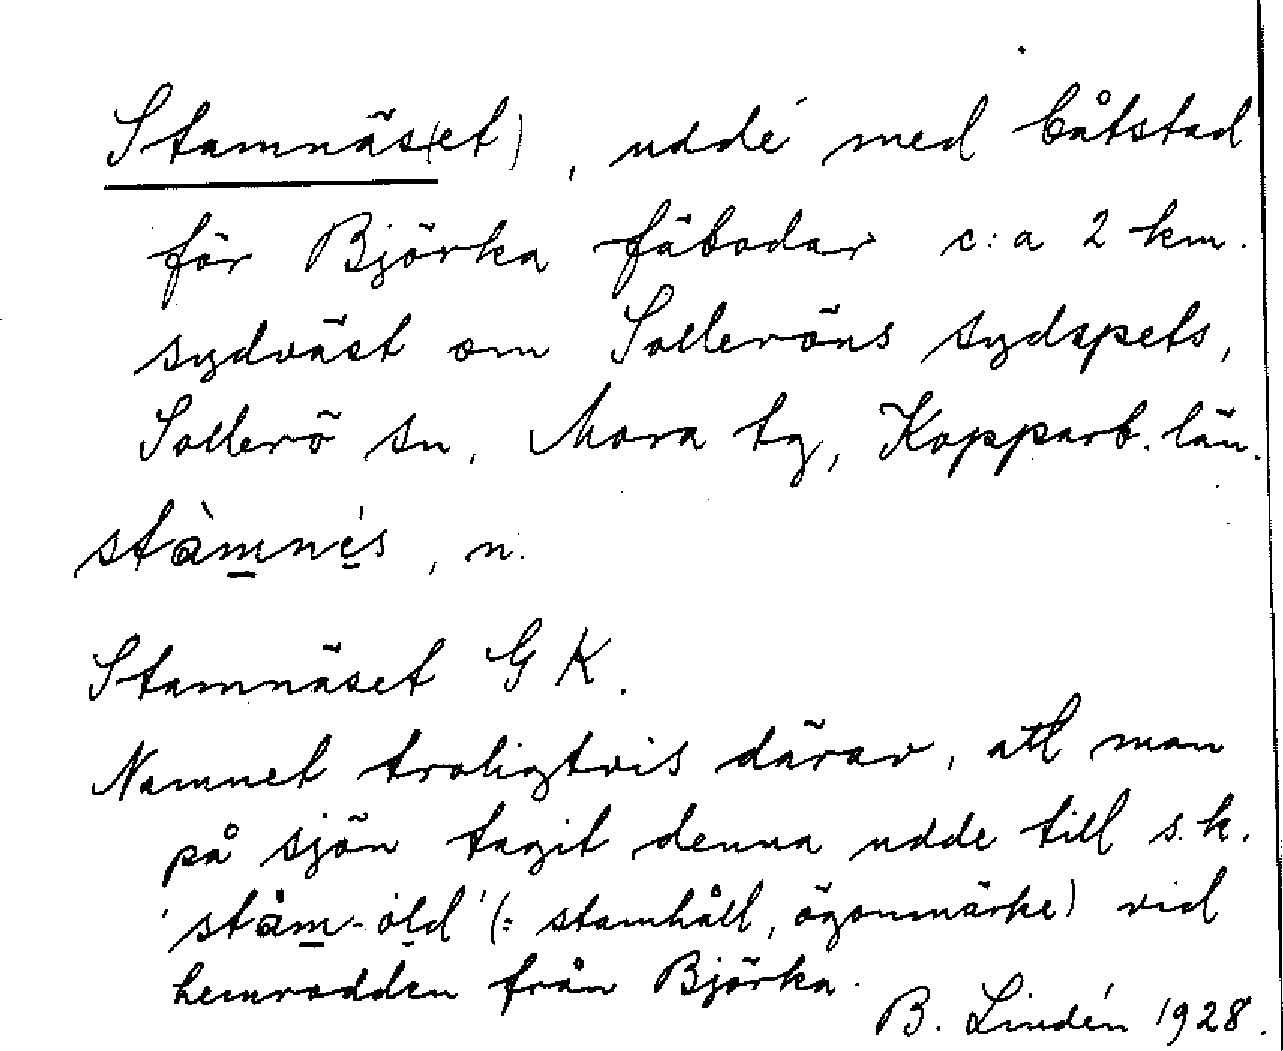 Stamnäs(et), udde med båtstad
för Björka fäbodar c:a 2 km.
sydväst om Solleröns sydspets,
Sollerö sn, Mora tg, Kopparb. län.
stàmnés, n.
Stamnäset GK.
Namnet troligtvis därav, att man
på sjön tagit denna udde till s.k.
'stàm-òld' (: stamhåll, ögonmärke) vid
hemrodden från Björka.
B. Lindén 1928.